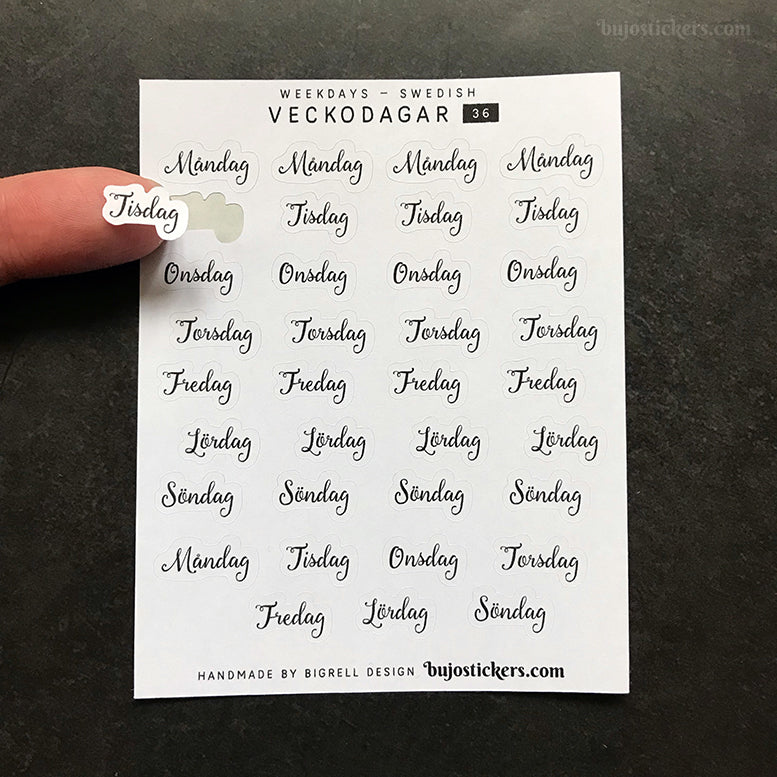 bujostickers.com
WEEKDAYS – SWEDISH
VECKODAGAR 36
Måndag Måndag Måndag Måndag
Tisdag Tisdag Tisdag Tisdag
Onsdag Onsdag Onsdag Onsdag
Torsdag Torsdag Torsdag Torsdag
Fredag Fredag Fredag Fredag
Lördag Lördag Lördag Lördag
Söndag Söndag Söndag Söndag
Måndag Tisdag Onsdag Torsdag
Fredag Lördag Söndag
HANDMADE BY BIGRELL DESIGN bujostickers.com